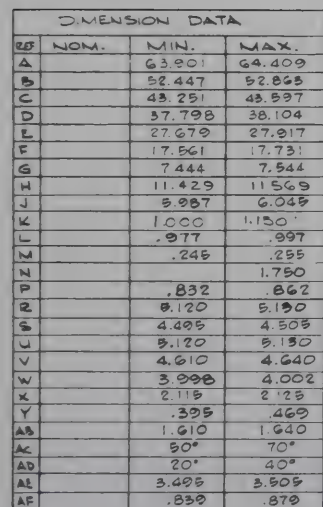 DIMENSION DATA
REF NOM. MIN. MAX.
A 63.901 64.409
B 52.447 52.863
C 43.251 43.597
D 37.798 38.104
E 27.679 27.917
F 17.561 17.731
G 7.444 7.544
H 11.429 11.569
J 5.987 6.045
K 1.000 1.130
L .977 .997
M .245 .255
N 1.750
P .832 .862
R 5.120 5.130
S 4.495 4.505
U 5.120 5.130
V 4.610 4.640
W 3.998 4.002
X 2.115 2.125
Y .395 .469
AB 1.610 1.640
AC 50° 70°
AD 20° 40°
AE 3.495 3.505
AF .839 .879